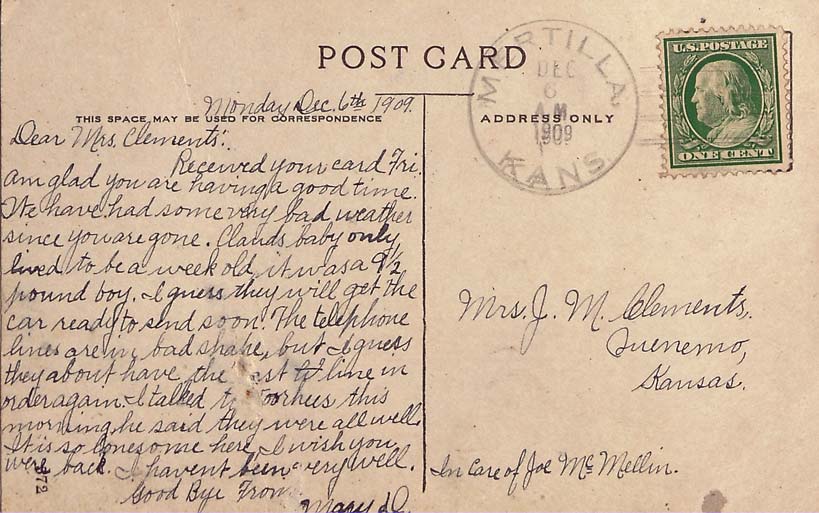 POST CARD
Monday Dec. 6th 1909.
THIS SPACE MAY BE USED FOR CORRESPONDENCE
Dear Mrs. Clements:
Received your card Fri.
am glad you are having a good time.
We have had some very bad weather
since you are gone. Clauds baby only
lived to be a week old, it was a 9 1/2
pound boy. I guess they will get the
car ready to send soon. The telephone
lines are in bad shape, but I guess
they about have the line in
order again. I talked to Voorhees this
morning he said they were all well.
It is so lonesome here, I wish you
were back. I havent been very well.
Good Bye From
Mary
372
ADDRESS ONLY
MERTILLA
DEC
6
A.M
1909
KANS.
U.S. POSTAGE
ONE CENT
Mrs. J. M. Clements,
Quenemo,
Kansas.
In Care of Joe McMellin.